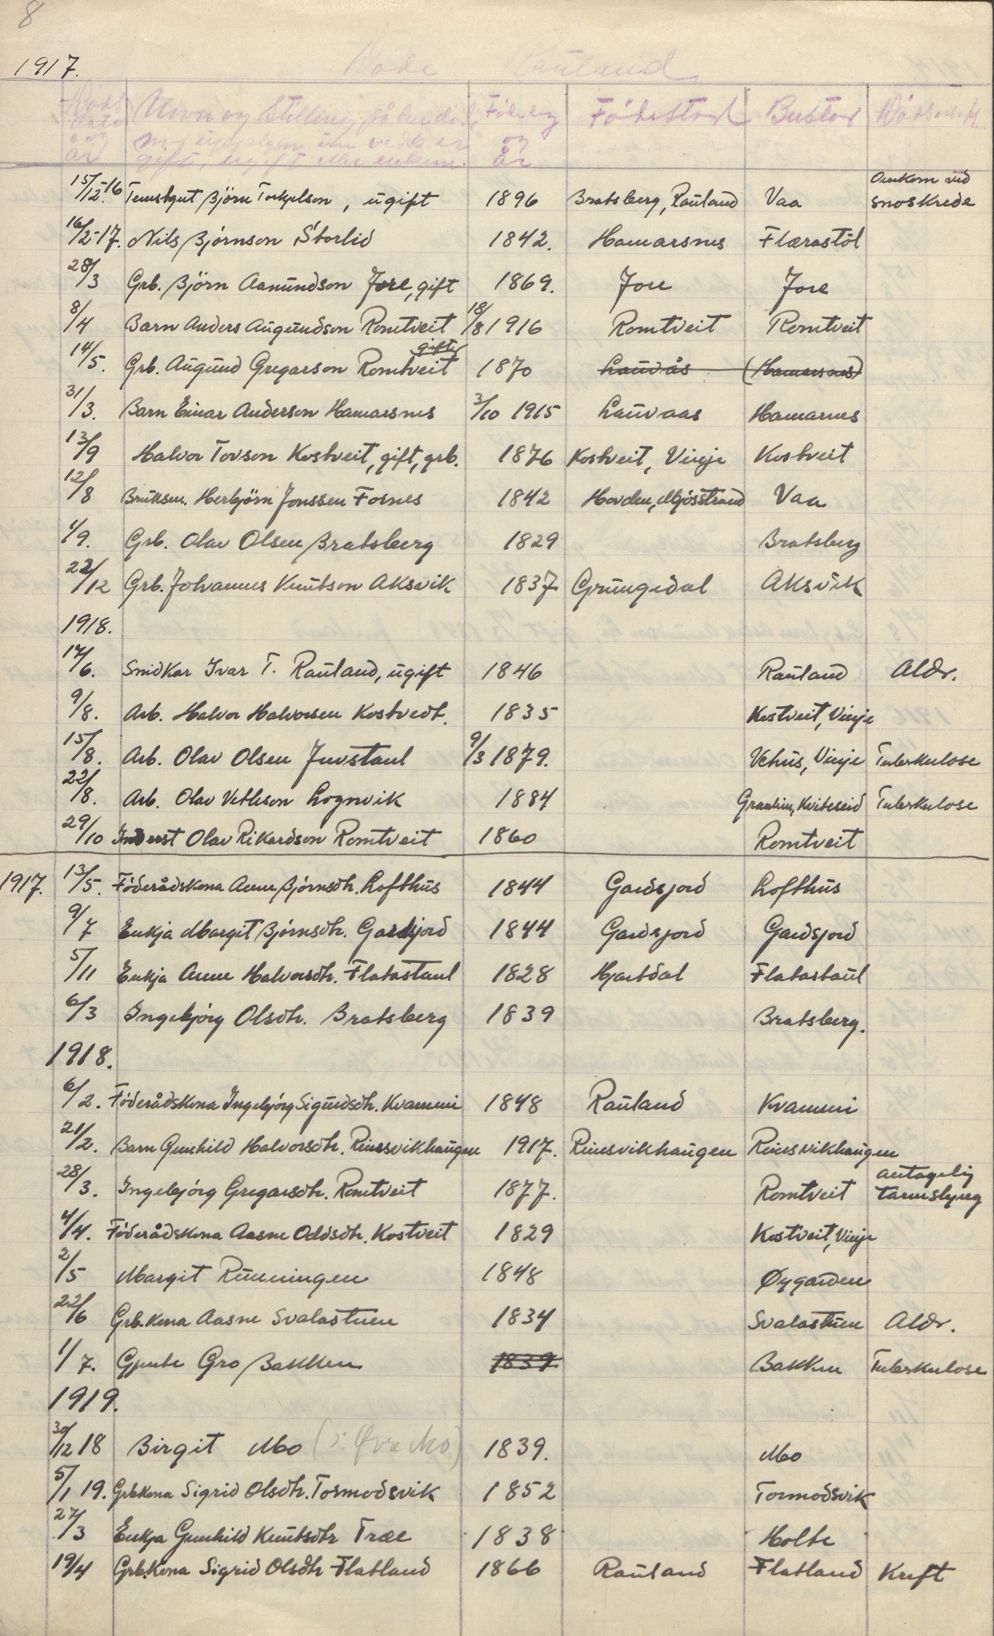 8
1917. Døde Rauland
Døds dato og år Navn og Stilling på den døde, Føde dag og år Fødestad Bustad Dødsorsak
gift, ugift eller enkem.
15/12-16 Tenestgut Björn Torkjelson, ugift 1896 Bratsberg, Rauland Vaa Omkom ved snoskrede
16/2-17. Nils Bjørnson Storlid 1842. Hamarsnes Flærastöl
28/3 Grb. Björn Aamundson Jore, gift 1869. Jore Jore
8/4 Barn Anders Augundson Romtveit 18/8 1916 Romtveit Romtveit
14/5. Grb. Augund Gregarson Romtveit gift 1870 Lauvås (Hamarsnes)
31/3. Barn Einar Anderson Hamarsnes 3/10 1915 Lauvaas Hamarnes
13/9 Halvor Tovson Kostveit, gift, grb. 1876 Kostveit, Vinje Kostveit
12/8 Bruksm. Herbjörn Jonssen Fosnes 1842 Hovden, Mjösstrand Vaa
1/9. Grb. Olav Olsen Bratsberg 1829 Bratsberg
22/12 Grb. Johannes Knutson Aksvik 1837 Grungedal Aksvik
1918.
17/6. Smidkar Ivar T. Rauland, ugift 1846 Rauland Aldr.
9/8. Arb. Halvor Halvorsen Kostvedt. 1835 Kostveit, Vinje
15/8. Arb. Olav Olsen Juvstaul 9/3 1879. Vehus, Vinje Tuberkulose
22/8. Arb. Olav Vetleson Lognvik 1884 Kviteseid Tuberkulose
29/10 Inderst Olav Rikardson Romtveit 1860 Romtveit
1917. 13/5. Föderådskona Anne Bjørnsdtr. Lofthus 1844 Gardsjord Lofthus
9/7 Enkja Margit Bjørnsdtr. Gardsjord 1844 Gardsjord Gardsjord
5/11 Enkja Anne Halvorsdtr. Flatastaul 1828 Hjartdal Flatastaul
6/3 Ingebjörg Olsdtr. Bratsberg 1839 Bratsberg.
1918.
6/2. Föderådskona Ingebjörg Sigurdsdtr. Kvammi 1848 Rauland Kvammi
21/2. Barn Gunhild Halvorsdtr. Rinesvikhaugen 1917. Rinesvikhaugen Rinesvikhaugen
28/3. Ingebjörg Gregarsdtr. Romtveit 1877. Romtveit antagelig tarmslyng
4/4. Föderådskona Aasne Oddsdtr. Kostveit 1829 Kostveit, Vinje
2/5 Margit Runningen 1848 Øygarden
22/6 Grb.kona Aasne Svalastuen 1834 Svalastuen Aldr.
1/7. Gjente Gro Bakken 1839 Bakken Tuberkulose
1919.
30/12 18 Birgit Mo (i Øvre Mo) 1839. Mo
5/1 19. Grb.kona Sigrid Olsdtr. Tormodsvik 1852 Tormodsvik
27/3 Enkja Gunhild Knutsdtr Træe 1838 Holte
19/4 Grb.kona Sigrid Olsdtr Flatland 1866 Rauland Flatland Kreft